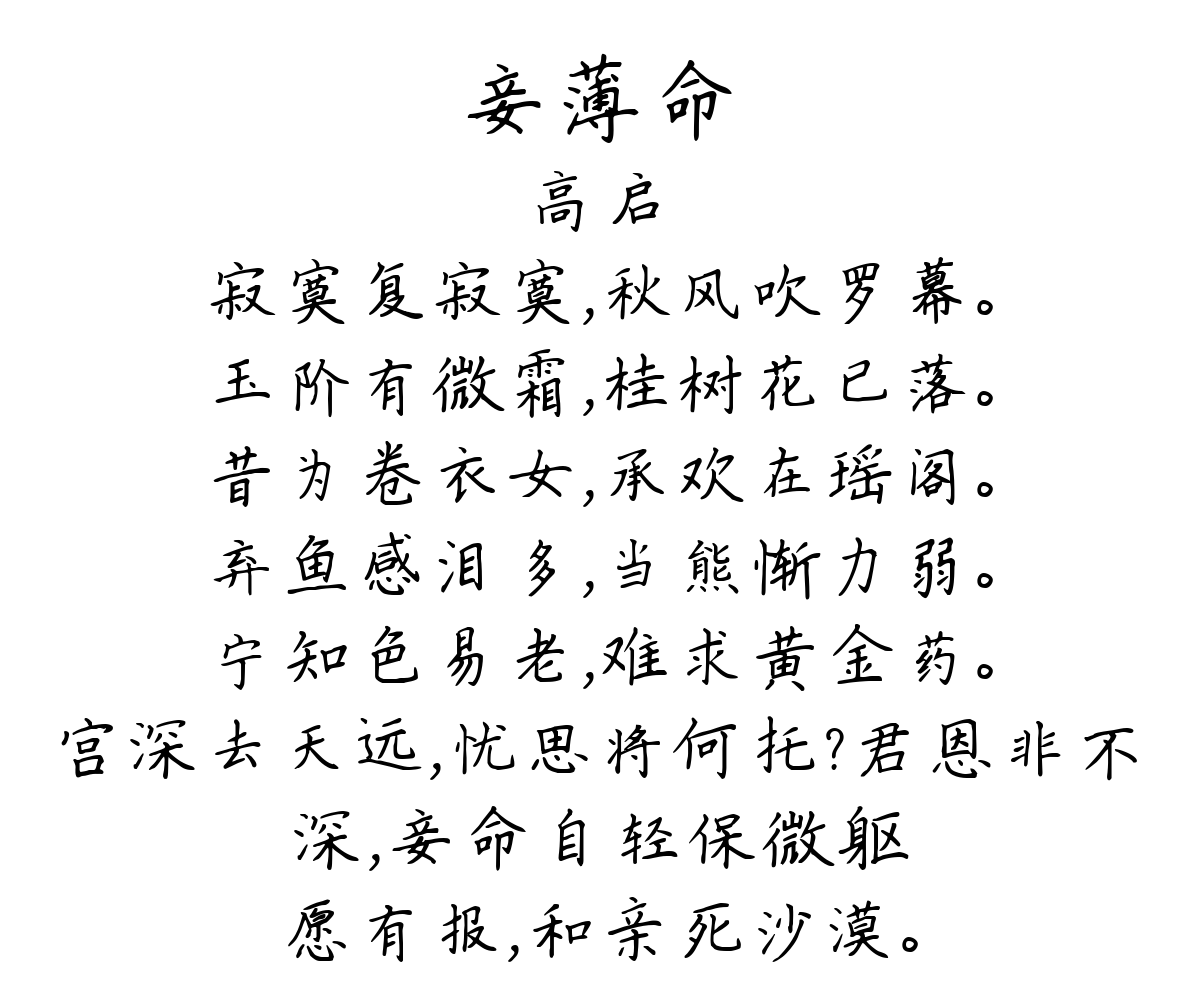 妾薄命
高启
寂寞复寂寞,秋风吹罗幕。
玉阶有微霜,桂树花已落。
昔为卷衣女,承欢在瑶阁。
弃鱼感泪多,当熊惭力弱。
宁知色易老,难求黄金药。
宫深去天远,忧思将何托?君恩非不
深,妾命自轻保微躯
愿有报,和亲死沙漠。